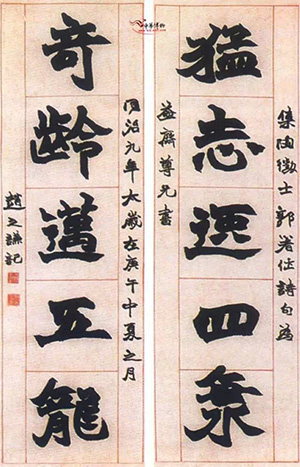 猛志逸四海
集陶徵士詩句為
益齋尊兄書
奇齡邁五龍
同治九年太歲在庚午中夏之月
趙之謙記